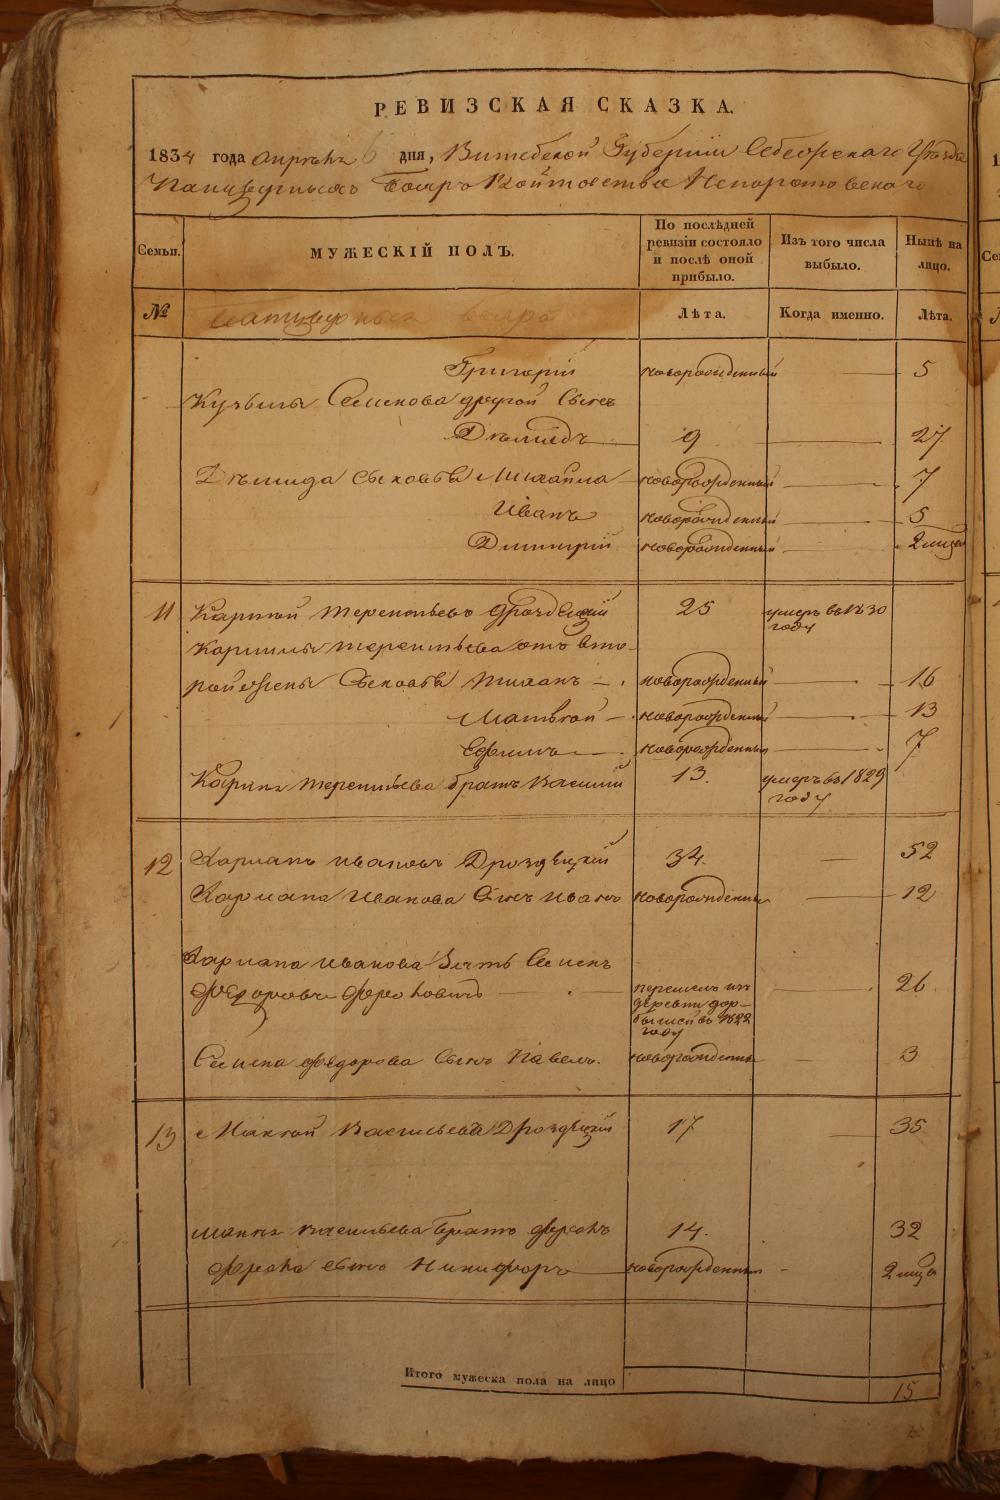 РЕВИЗСКАЯ СКАЗКА.
1834 года апреля 6 дня, Витебской Губернiи Себежскаго Уѣзда
Панцерныхъ Бояръ Войтовства Непоротовскаго
Семьи.
МУЖЕСКIЙ ПОЛЪ.
По послѣдней
ревизiи состояло
и послѣ оной
прибыло.
Изъ того числа
выбыло.
Нынѣ на
лицо.
№
Панцерныхъ бояръ
Лѣта.
Когда именно.
Лѣта.
Григорiй новорожденный 5
Кузьмы Семенова другой Сынъ
Демидъ 9 27
Демида сыновья Михайла новорожденный 7
Иванъ новорожденный 5
Димитрiй новорожденный 2 мѣсяца
11 Карпъ Терентьевъ Дроздецкiй 25 умеръ въ 1830
году
Терентьева отъ вто-
рой жены Сыновья новорожденный 16
Матвей новорожденный 13
Ефимъ новорожденный 7
Карпа Терентьева братъ Василiй 13. умеръ въ 1829
году
12 Иванов Дроздецкiй 34. 52
Иванова Сынъ Иванъ новорожденный 12
Иванова Зять Семенъ
Федоровъ перешелъ изъ 26
деревни
въ 1822
году
Семена Федорова Сынъ Павелъ. новорожденный 3
13 Васильевъ Дроздецкiй 17 35
Васильева братъ 14. 32
сынъ Никифоръ новорожденный 2 мѣсяца
Итого мужеска пола на лицо
15